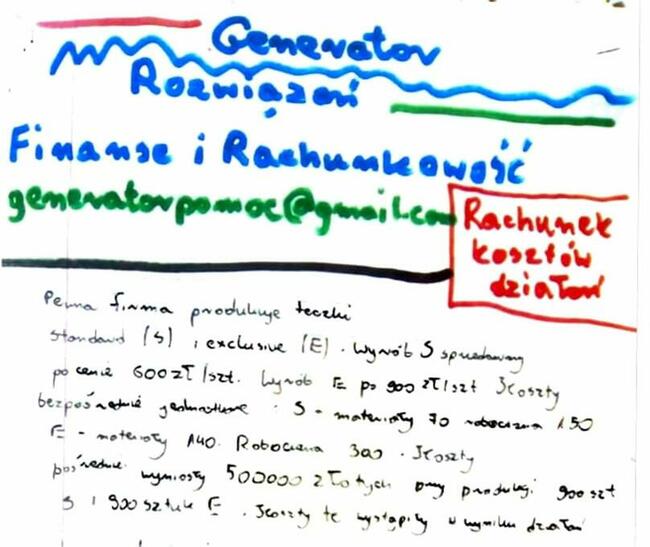 Generator
Rozwiązań
Finanse i Rachunkowość
generatorpomoc@gmail.com
Rachunek
kosztów
działań
Pewna firma produkuje teczki
standard (S) i exclusive (E). Wyrób S sprzedawany
po cenie 600 zł/szt. Wyrób E po 900 zł/szt Koszty
bezpośrednie jednostkowe. S - materiały 70 robocizna 150
E - materiały 140. Robocizna 300. Koszty
pośrednie wyniosły 500000 złotych przy produkcji 900 szt
S i 900 sztuk E. Koszty te wystąpiły w wyniku działań